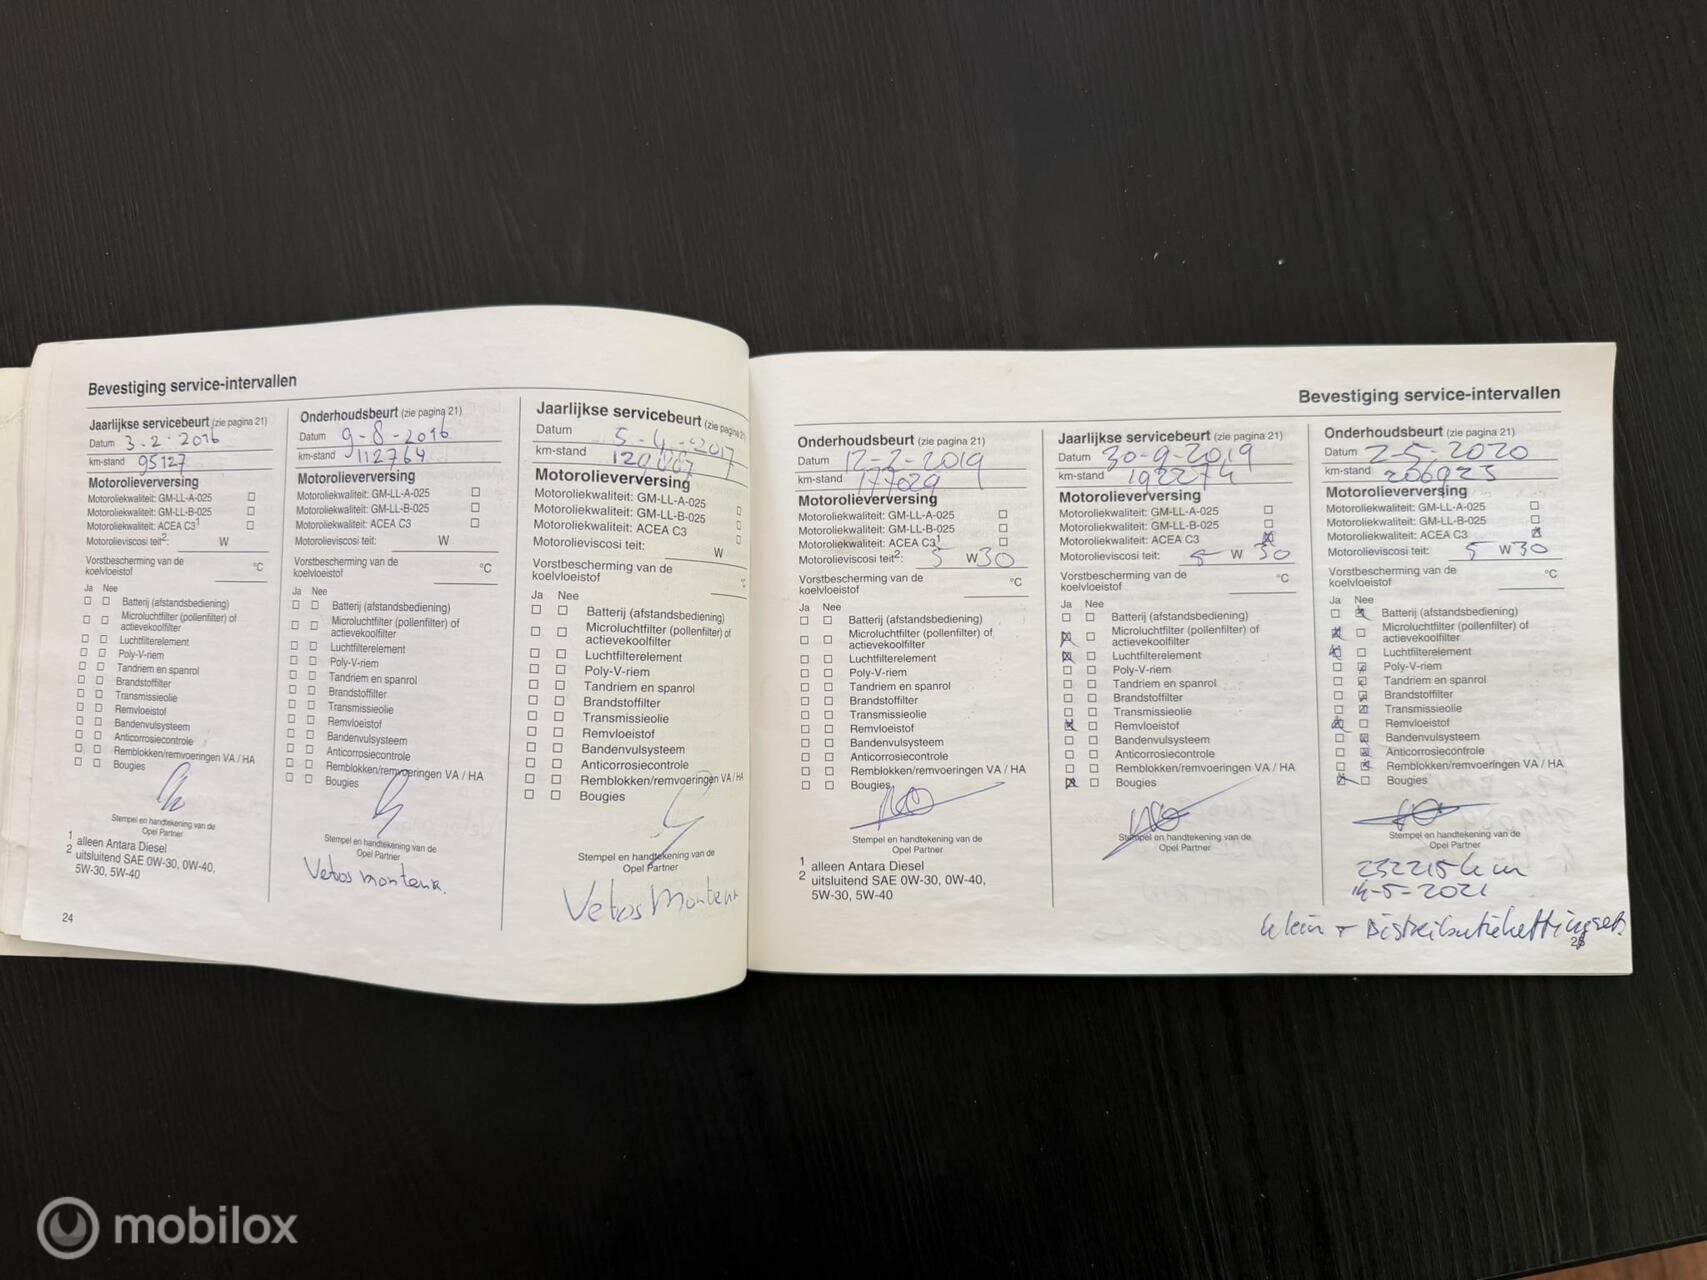 Bevestiging service-intervallen
Jaarlijkse servicebeurt (zie pagina 21)
Datum 3-2-2016
km-stand 95127
Motorolieverversing
Motoroliekwaliteit: GM-LL-A-025
Motoroliekwaliteit: GM-LL-B-025
Motoroliekwaliteit: ACEA C3¹
Motorolieviscosi teit²: W
Vorstbescherming van de
koelvloeistof °C
Ja Nee
Batterij (afstandsbediening)
Microluchtfilter (pollenfilter) of
actievekoolfilter
Luchtfilterelement
Poly-V-riem
Tandriem en spanrol
Brandstoffilter
Transmissieolie
Remvloeistof
Bandenvulsysteem
Anticorrosiecontrole
Remblokken/remvoeringen VA / HA
Bougies
Stempel en handtekening van de
Opel Partner
1 alleen Antara Diesel
2 uitsluitend SAE 0W-30, 0W-40,
5W-30, 5W-40
24
Onderhoudsbeurt (zie pagina 21)
Datum 9-8-2016
km-stand 112764
Motorolieverversing
Motoroliekwaliteit: GM-LL-A-025
Motoroliekwaliteit: GM-LL-B-025
Motoroliekwaliteit: ACEA C3
Motorolieviscosi teit: W
Vorstbescherming van de
koelvloeistof °C
Ja Nee
Batterij (afstandsbediening)
Microluchtfilter (pollenfilter) of
actievekoolfilter
Luchtfilterelement
Poly-V-riem
Tandriem en spanrol
Brandstoffilter
Transmissieolie
Remvloeistof
Bandenvulsysteem
Anticorrosiecontrole
Remblokken/remvoeringen VA / HA
Bougies
Stempel en handtekening van de
Opel Partner
Vetos Monteur.
Jaarlijkse servicebeurt (zie pagina 21)
Datum 5-4-2017
km-stand
Motorolieverversing
Motoroliekwaliteit: GM-LL-A-025
Motoroliekwaliteit: GM-LL-B-025
Motoroliekwaliteit: ACEA C3
Motorolieviscosi teit: W
Vorstbescherming van de
koelvloeistof
Ja Nee
Batterij (afstandsbediening)
Microluchtfilter (pollenfilter) of
actievekoolfilter
Luchtfilterelement
Poly-V-riem
Tandriem en spanrol
Brandstoffilter
Transmissieolie
Remvloeistof
Bandenvulsysteem
Anticorrosiecontrole
Remblokken/remvoeringen VA / HA
Bougies
Stempel en handtekening van de
Opel Partner
Vetos Monteur
Bevestiging service-intervallen
Onderhoudsbeurt (zie pagina 21)
Datum 12-2-2019
km-stand 177029
Motorolieverversing
Motoroliekwaliteit: GM-LL-A-025
Motoroliekwaliteit: GM-LL-B-025
Motoroliekwaliteit: ACEA C3¹
Motorolieviscosi teit²: 5 W 30
Vorstbescherming van de
koelvloeistof °C
Ja Nee
Batterij (afstandsbediening)
Microluchtfilter (pollenfilter) of
actievekoolfilter
Luchtfilterelement
Poly-V-riem
Tandriem en spanrol
Brandstoffilter
Transmissieolie
Remvloeistof
Bandenvulsysteem
Anticorrosiecontrole
Remblokken/remvoeringen VA / HA
Bougies
Stempel en handtekening van de
Opel Partner
1 alleen Antara Diesel
2 uitsluitend SAE 0W-30, 0W-40,
5W-30, 5W-40
Jaarlijkse servicebeurt (zie pagina 21)
Datum 30-9-2019
km-stand 192274
Motorolieverversing
Motoroliekwaliteit: GM-LL-A-025
Motoroliekwaliteit: GM-LL-B-025
Motoroliekwaliteit: ACEA C3
Motorolieviscosi teit: 5 W 30
Vorstbescherming van de
koelvloeistof °C
Ja Nee
Batterij (afstandsbediening)
Microluchtfilter (pollenfilter) of
actievekoolfilter
Luchtfilterelement
Poly-V-riem
Tandriem en spanrol
Brandstoffilter
Transmissieolie
Remvloeistof
Bandenvulsysteem
Anticorrosiecontrole
Remblokken/remvoeringen VA / HA
Bougies
Stempel en handtekening van de
Opel Partner
Onderhoudsbeurt (zie pagina 21)
Datum 2-5-2020
km-stand 206923
Motorolieverversing
Motoroliekwaliteit: GM-LL-A-025
Motoroliekwaliteit: GM-LL-B-025
Motoroliekwaliteit: ACEA C3
Motorolieviscosi teit: 5 W 30
Vorstbescherming van de
koelvloeistof °C
Ja Nee
Batterij (afstandsbediening)
Microluchtfilter (pollenfilter) of
actievekoolfilter
Luchtfilterelement
Poly-V-riem
Tandriem en spanrol
Brandstoffilter
Transmissieolie
Remvloeistof
Bandenvulsysteem
Anticorrosiecontrole
Remblokken/remvoeringen VA / HA
Bougies
Stempel en handtekening van de
Opel Partner
232215 km
14-5-2021
klein + Distributiekettingset.
mobilox